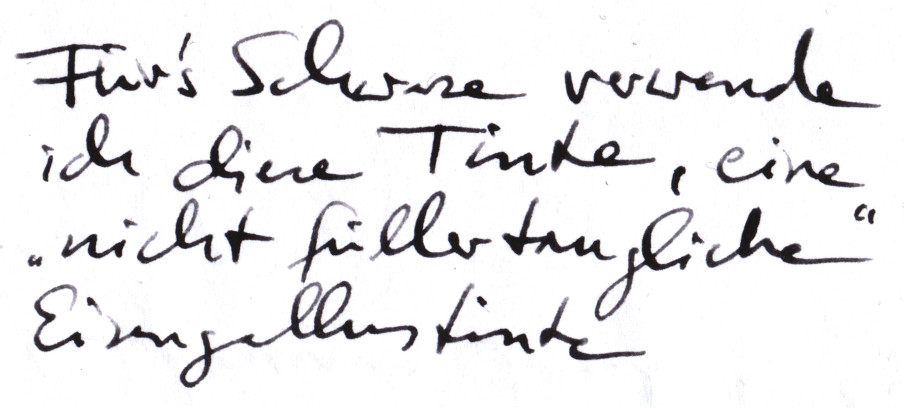 Für's Schwarze verwende
ich diese Tinte, eine
„nicht füllertaugliche“
Eisengallustinte